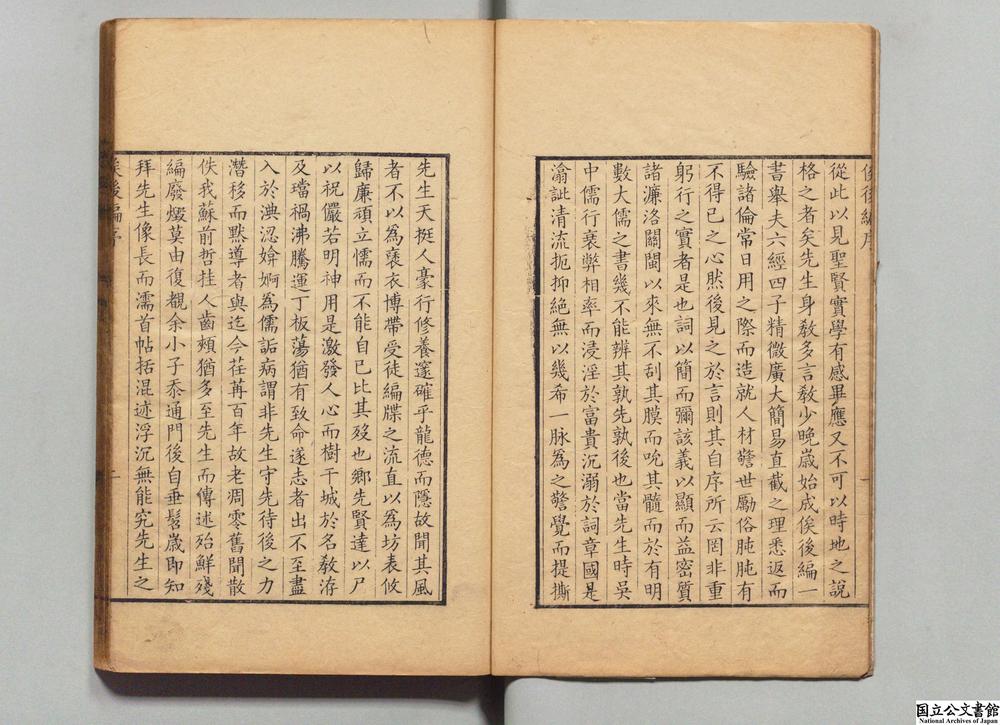 俟後編序
從此以見聖賢實學有感畢應又不可以時地之說
格之者矣先生身敎多言敎少晚歲始成俟後編一
書舉夫六經四子精微廣大簡易直截之理悉返而
驗諸倫常日用之際而造就人材警世勵俗肫肫有
不得已之心然後見之於言則其自序所云罔非重
躬行之實者是也詞以簡而彌該義以顯而益密質
諸濂洛關閩以來無不刮其膜而吮其髓而於有明
數大儒之書幾不能辨其孰先孰後也當先生時吳
中儒行衰弊相率而浸淫於富貴沉溺於詞章國是
渝訿清流扼抑絕無以幾希一脉爲之警覺而提撕
先生天挺人豪行修養邃確乎龍德而隱故聞其風
者不以爲襃衣博帶受徒編牒之流直以爲坊表攸
歸廉頑立懦而不能自已比其歿也鄉先賢達以尸
以祝儼若明神用是激發人心而樹干城於名敎洊
及璫禍沸騰運丁板蕩猶有致命遂志者出不至盡
入於淟涊媕婀爲儒詬病謂非先生守先待後之力
潛移而默導者與迄今荏苒百年故老凋零舊聞散
佚我蘇前哲挂人齒頰猶多至先生而傳述殆鮮殘
編廢燬莫由復覩余小子忝通門後自垂髫歲即知
拜先生像長而濡首帖括混迹浮沉無能究先生之
俟後編序